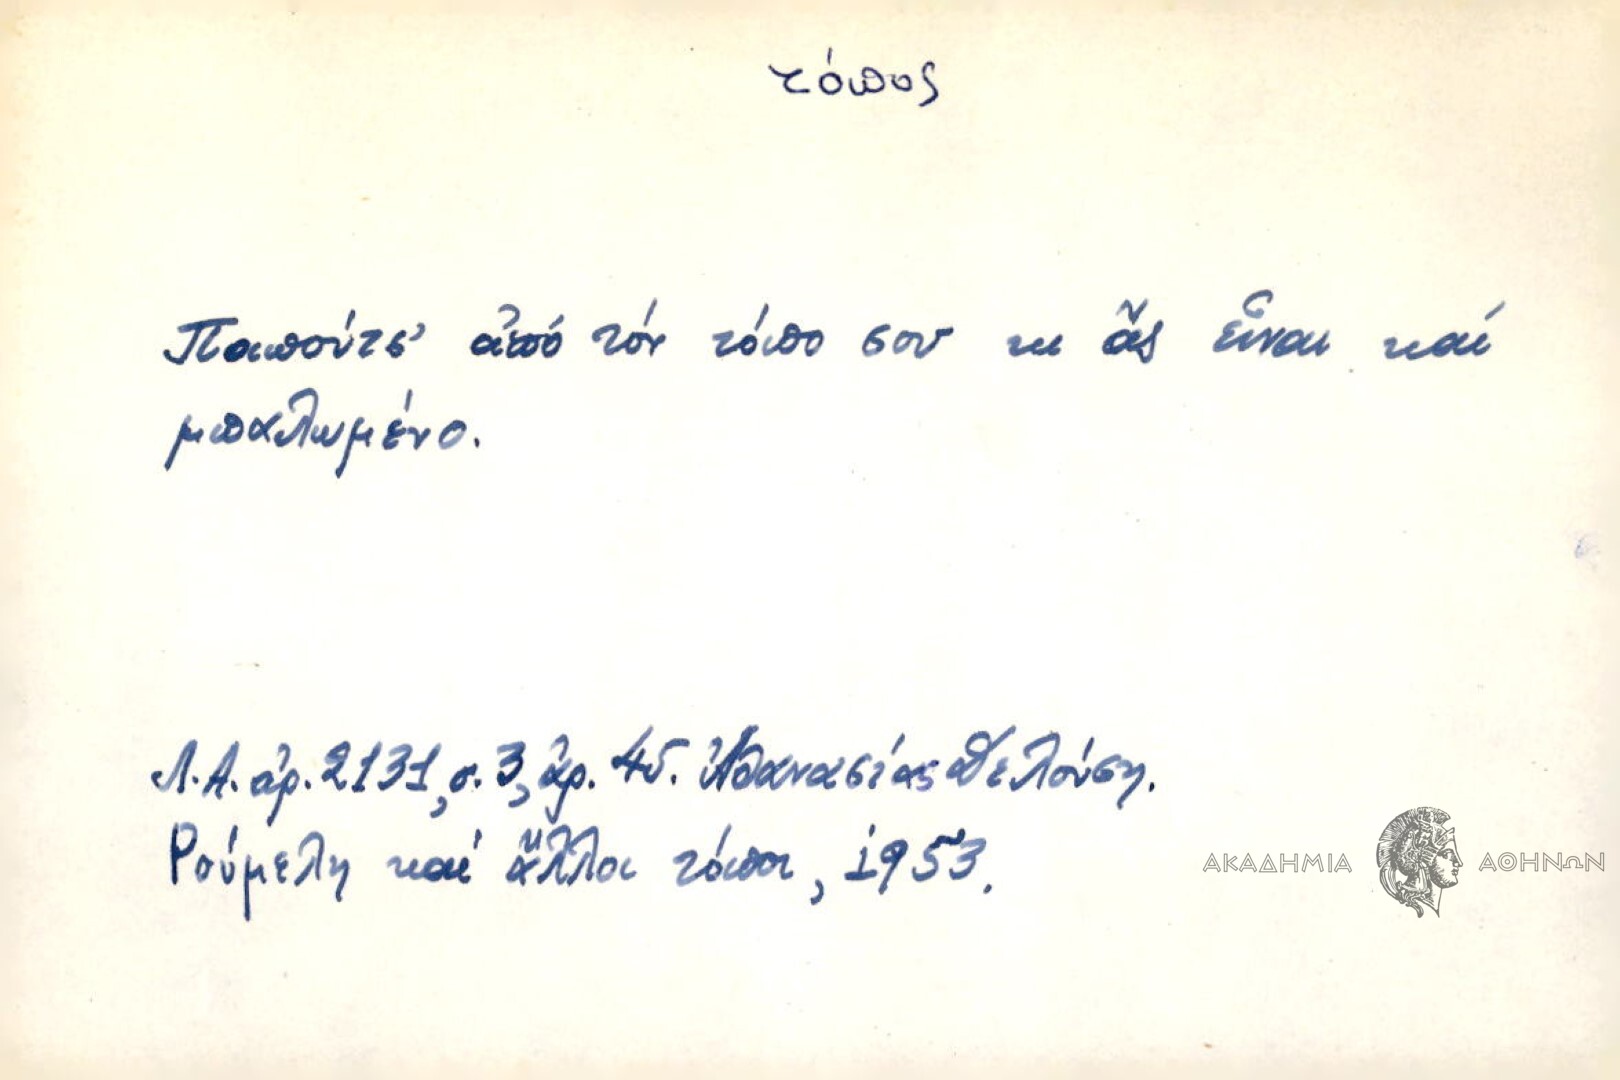 τόπος
Παπούτσ' ἀπό τόν τόπο σου κι ἄς εἶναι καί
μπαλωμένο.
Λ.Α. ἀρ. 2131, σ. 3, ἀρ. 45. Ἀθανασίας
Ρούμελη καί ἄλλοι τόποι, 1953.
ΑΚΑΔΗΜΙΑ ΑΘΗΝΩΝ